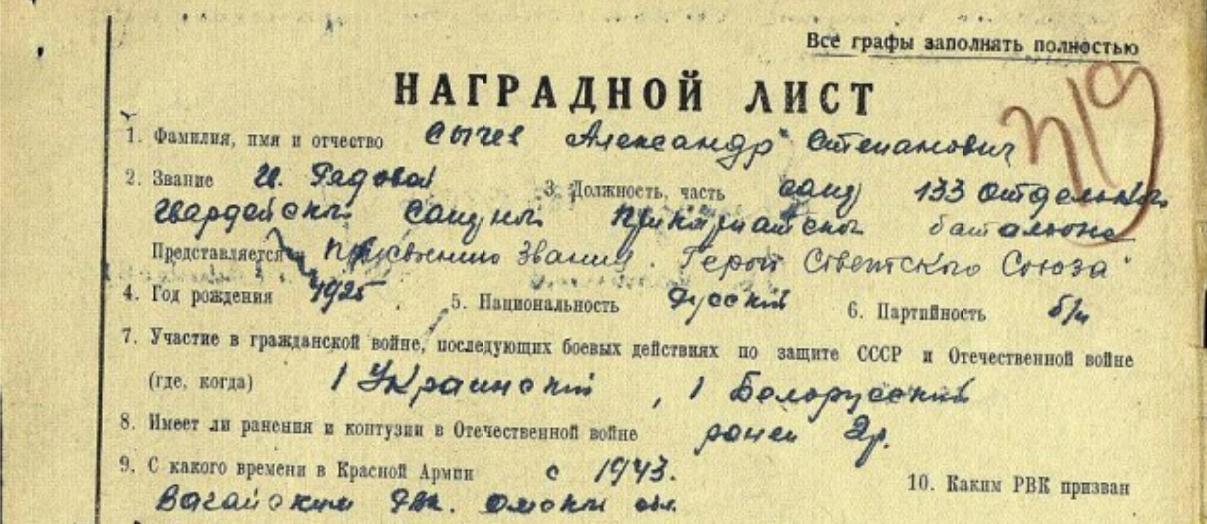 Все графы заполнять полностью
НАГРАДНОЙ ЛИСТ
319
1. Фамилия, имя и отчество Сычев Александр Степанович
2. Звание Рядовой 3. Должность, часть 133 отдельного
гвардейского батальона
Представляется к присвоению звания "Герой Советского Союза"
4. Год рождения 1925 5. Национальность Русский 6. Партийность б/п
7. Участие в гражданской войне, последующих боевых действиях по защите СССР и Отечественной войне
(где, когда) 1 Украинский, 1 Белорусский
8. Имеет ли ранения и контузии в Отечественной войне ранен 2 р.
9. С какого времени в Красной Армии с 1943. 10. Каким РВК призван
Вагайским РВК. Омской обл.